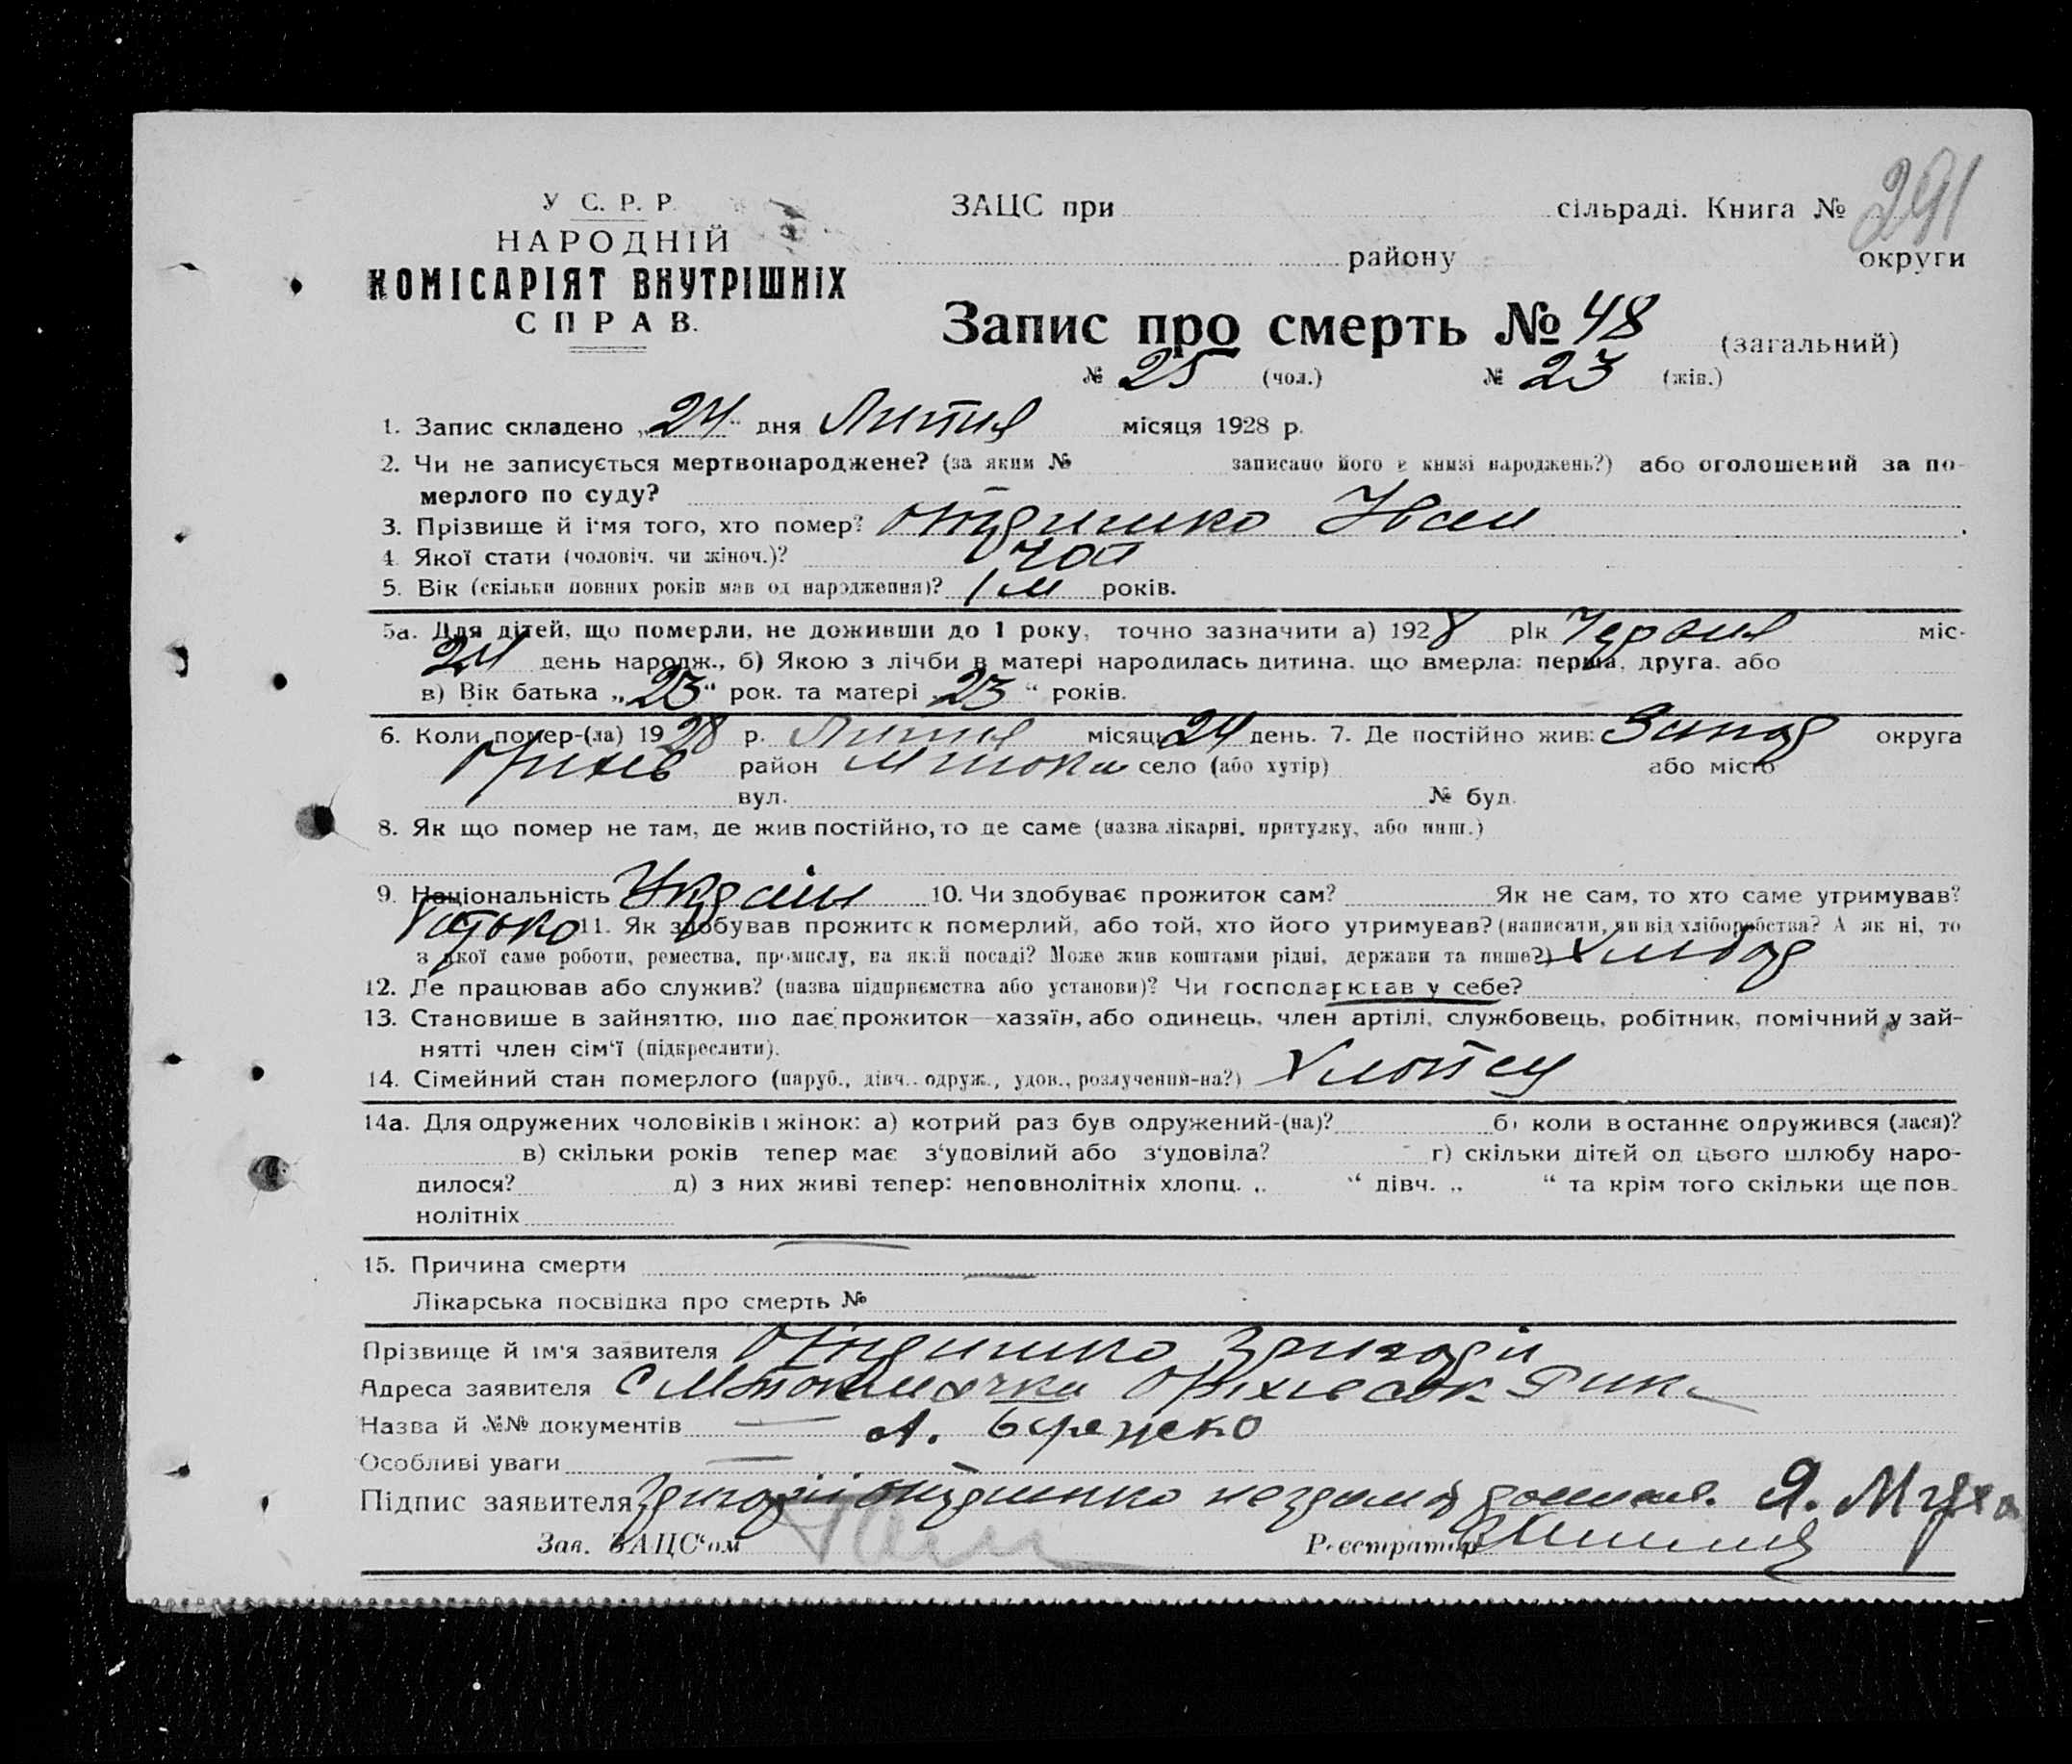 У С. Р. Р.
НАРОДНІЙ
КОМІСАРІЯТ ВНУТРІШНІХ
СПРАВ.
ЗАЦС при сільраді. Книга № 291
району округи
Запис про смерть № 48 (загальний)
№ 25 (чол.) № 23 (жін.)
1. Запис складено „24“ дня місяця 1928 р.
2. Чи не записується мертвонароджене? (за яким № записано його в книзі народжень?) або оголошений за по-
мерлого по суду?
3. Прізвище й ім'я того, хто помер? Іван
4. Якої стати (чоловіч. чи жіноч.)? чол
5. Вік (скільки повних років мав од народження)? 1 м років.
5а. Для дітей, що померли, не доживши до 1 року, точно зазначити а) 1928 рік міс.
24 день народж., б) Якою з лічби в матері народилась дитина, що вмерла: перша, друга, або
в) Вік батька „23“ рок. та матері „23“ років.
6. Коли помер-(ла) 1928 р. місяць 24 день. 7. Де постійно жив: Запор округа
Оріхів район село (або хутір) або місто
вул. № буд.
8. Як що помер не там, де жив постійно, то де саме (назва лікарні, притулку, або инш.)
9. Національність Україн 10. Чи здобуває прожиток сам? Як не сам, то хто саме утримував?
батько 11. Як здобував прожиток померлий, або той, хто його утримував? (написати, як від хліборобства? А як ні, то
з якої саме роботи, ремества, промислу, на якій посаді? Може жив коштами рідні, держави та инше?) Хлібор
12. Де працював або служив? (назва підприємства або установи)? Чи господарював у себе?
13. Становище в зайняттю, що дає прожиток—хазяїн, або одинець, член артілі, службовець, робітник, помічний у зай-
нятті член сім'ї (підкреслити).
14. Сімейний стан померлого (паруб., дівч., одруж., удов., розлучений-на?) Хлопец
14а. Для одружених чоловіків і жінок: а) котрий раз був одружений-(на)? б) коли в останнє одружився (лася)?
в) скільки років тепер має з'удовілий або з'удовіла? г) скільки дітей од цього шлюбу наро-
дилося? д) з них живі тепер: неповнолітніх хлопц. „ “ дівч. „ “ та крім того скільки ще пов-
нолітніх
15. Причина смерти
Лікарська посвідка про смерть №
Прізвище й ім'я заявителя Григорій
Адреса заявителя с
Назва й №№ документів — А.
Особливі уваги —
Підпис заявителя Григорій Я. Муха
Зав. ЗАЦС'ом Реєстратор